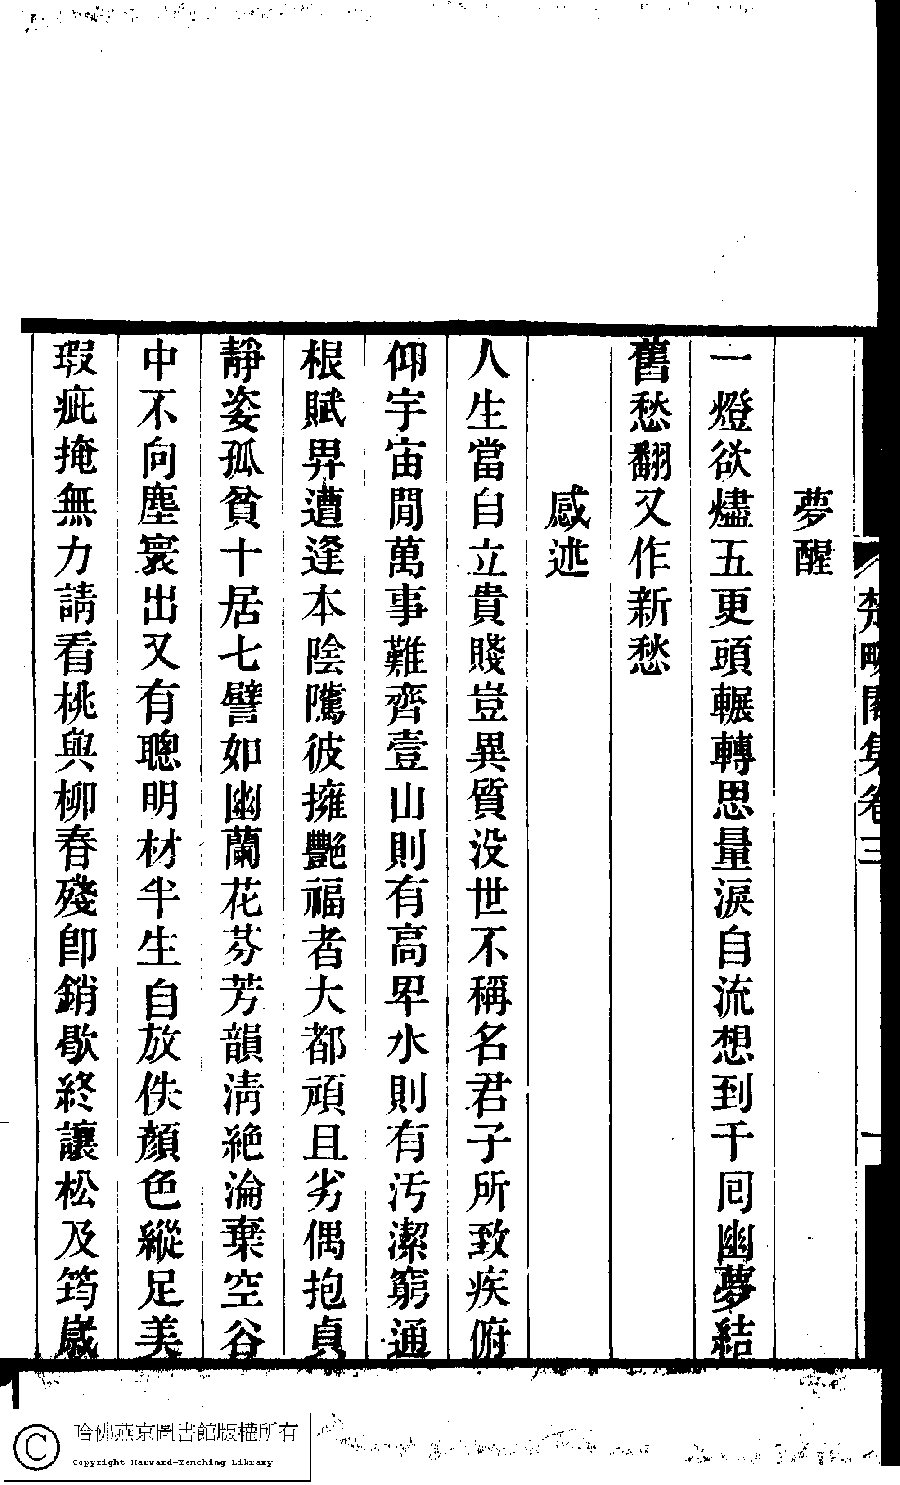 楚畹閣集卷三 一
夢醒
一燈欲燼五更頭輾轉思量淚自流想到千囘幽夢結
舊愁翻又作新愁
感述
人生當自立貴賤豈異質没世不稱名君子所致疾俯
仰宇宙閒萬事難齊壹山則有高卑水則有汚潔窮通
根賦畀遭逢本陰隲彼擁艷福者大都頑且劣偶抱貞
靜姿孤貧十居七譬如幽蘭花芬芳韻淸絶淪棄空谷
中不向塵寰出又有聰明材半生自放佚顏色縱足美
瑕疵掩無力請看桃與柳春殘卽銷歇終讓松及筠歲
哈佛燕京圖書館版權所有
Copyright Harvard-Yenching Library